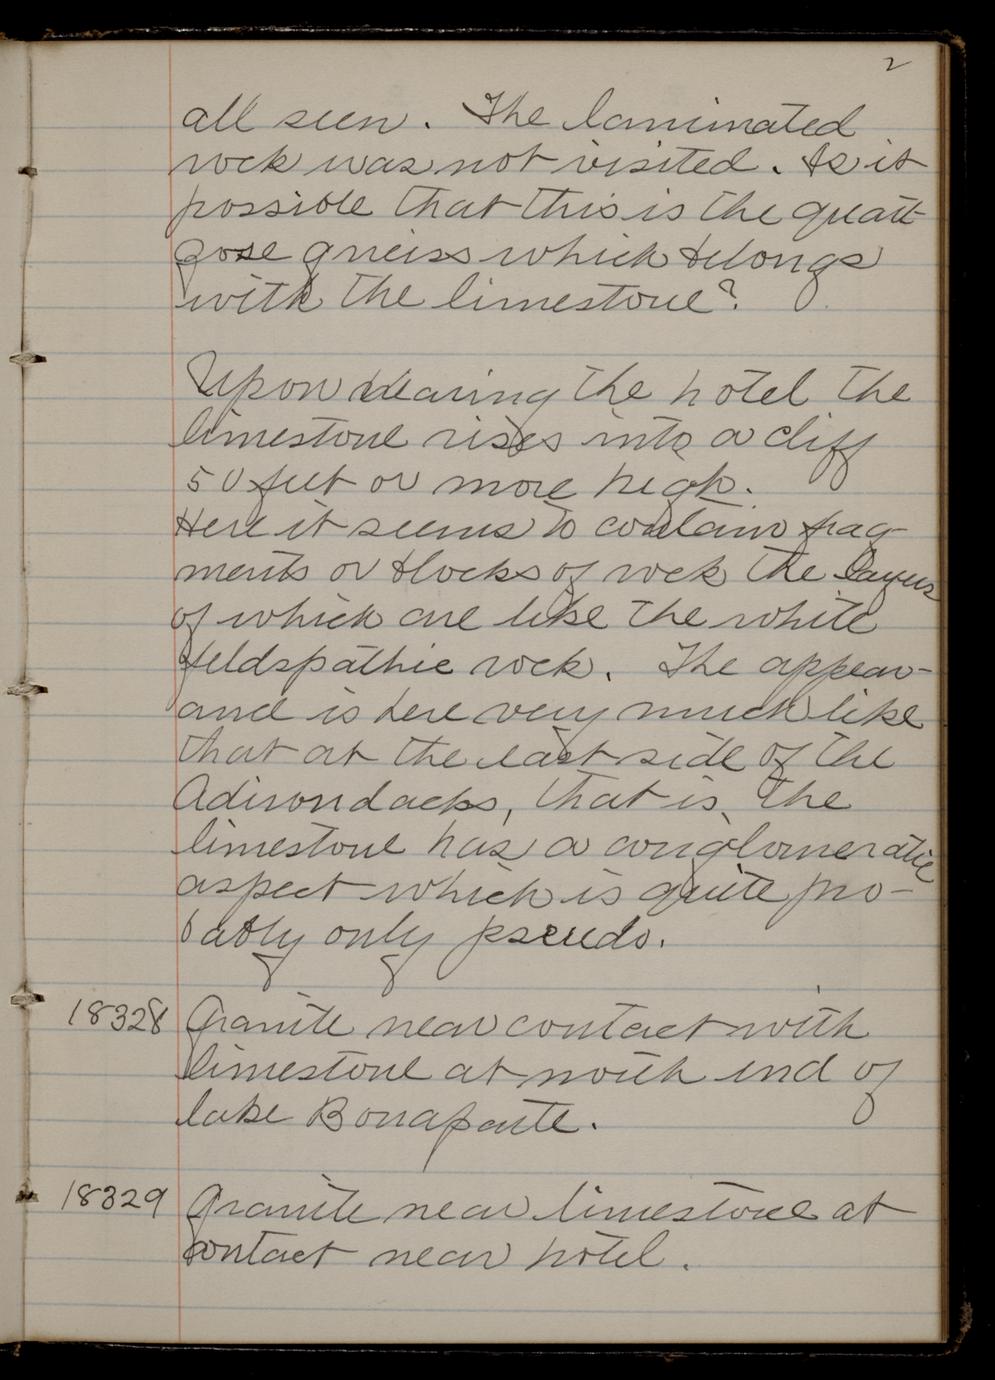 2
all seen. The laminated
rock was not visited. Is it
possible that this is the quart
zose gneiss which belongs
with the limestone?
Upon nearing the hotel the
limestone rises into a cliff
50 feet or more high.
Here it seems to contain frag-
ments or blocks of rock the layers
of which are like the white
feldspathic rock. The appear-
ance is here very much like
that at the east side of the
Adirondacks, that is, the
limestone has a conglomeratic
aspect which is quite pro-
bably only pseudo.
18328 Granite near contact with
limestone at north end of
lake Bonaparte.
18329 Granite near limestone at
contact near hotel.